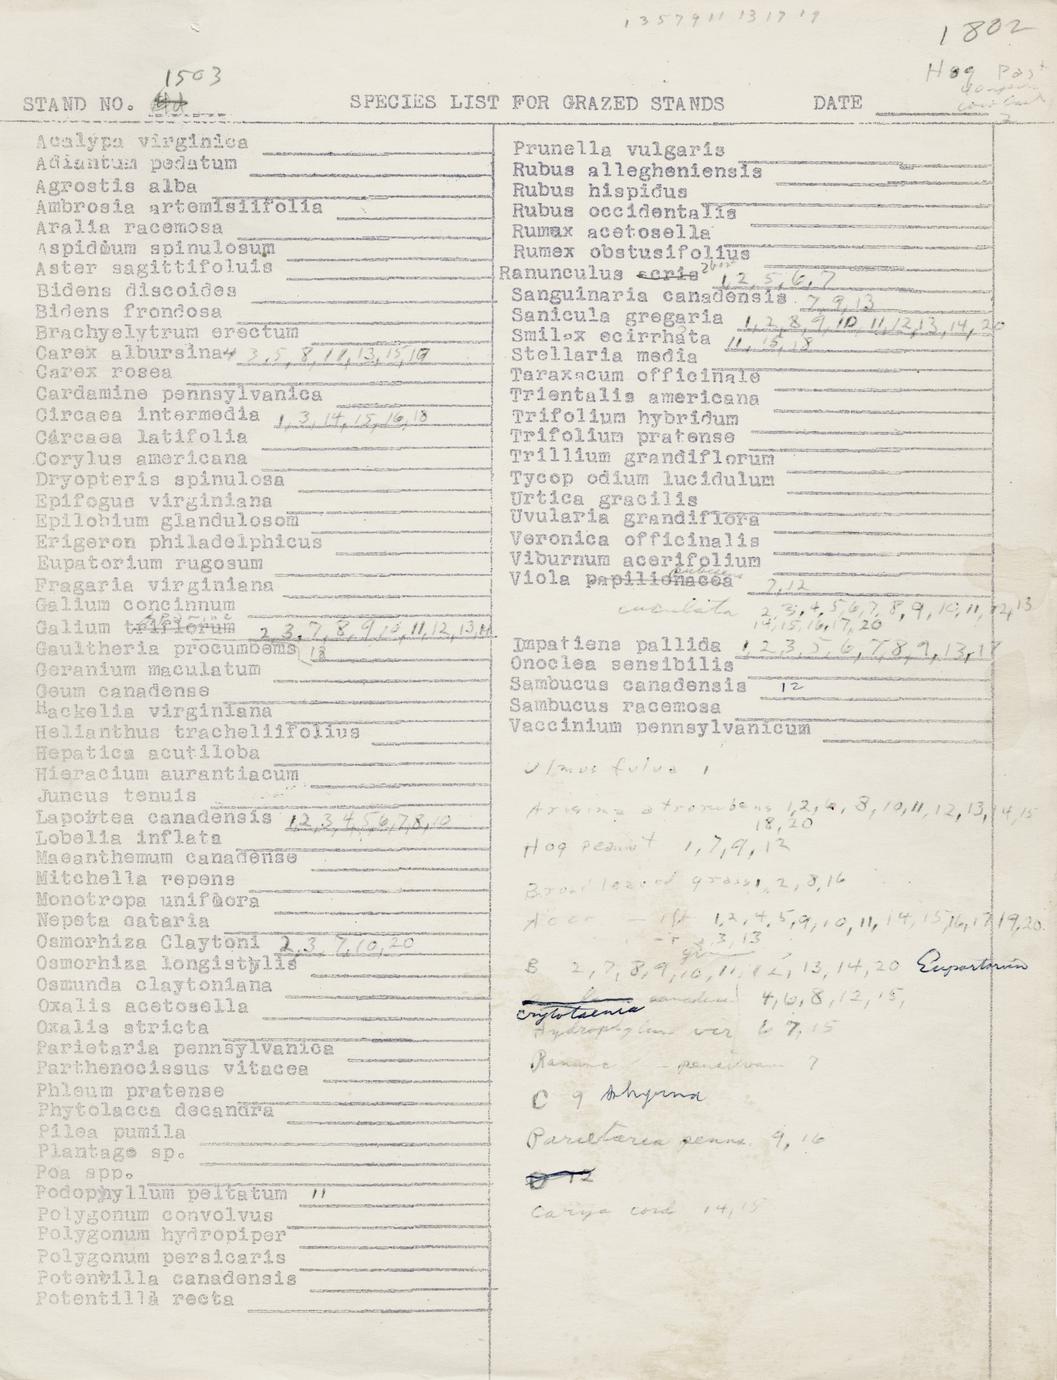 1 3 5 7 9 11 13 17 19
1802
1503
Hog Past
STAND NO.
SPECIES LIST FOR GRAZED STANDS
DATE
Acalypa virginica
Adiantum pedatum
Agrostis alba
Ambrosia artemisiifolia
Aralia racemosa
Aspidium spinulosum
Aster sagittifoluis
Bidens discoides
Bidens frondosa
Brachyelytrum erectum
Carex albursina 3,5,8,11,13,15,19
Carex rosea
Cardamine pennsylvanica
Circaea intermedia 1,3,14,15,16,18
Circaea latifolia
Corylus americana
Dryopteris spinulosa
Epifogus virginiana
Epilobium glandulosom
Erigeron philadelphicus
Eupatorium rugosum
Fragaria virginiana
Galium concinnum
Galium triflorum 2,3,7,8,9,10,11,12,13,14
Gaultheria procumbems 18
Geranium maculatum
Geum canadense
Hackelia virginiana
Helianthus tracheliifolius
Hepatica acutiloba
Hieracium aurantiacum
Juncus tenuis
Laportea canadensis 1,2,3,4,5,6,7,8,10
Lobelia inflata
Maeanthemum canadense
Mitchella repens
Monotropa uniflora
Nepeta cataria
Osmorhiza Claytoni 2,3,7,10,20
Osmorhiza longistylis
Osmunda claytoniana
Oxalis acetosella
Oxalis stricta
Parietaria pennsylvanica
Parthenocissus vitacea
Phleum pratense
Phytolacca decandra
Pilea pumila
Plantago sp.
Poa spp.
Podophyllum peltatum 11
Polygonum convolvus
Polygonum hydropiper
Polygonum persicaris
Potentilla canadensis
Potentilla recta
Prunella vulgaris
Rubus allegheniensis
Rubus hispidus
Rubus occidentalis
Rumax acetosella
Rumex obstusifolius
Ranunculus acris 1,2,5,6,7
Sanguinaria canadensis 7,9,13
Sanicula gregaria 1,2,8,9,10,11,12,13,14,20
Smilax ecirrhata 11,15,18
Stellaria media
Taraxacum officinale
Trientalis americana
Trifolium hybridum
Trifolium pratense
Trillium grandiflorum
Tycop odium lucidulum
Urtica gracilis
Uvularia grandiflora
Veronica officinalis
Viburnum acerifolium
Viola papilionacea 7,12
cuculata 2,3,4,5,6,7,8,9,10,11,12,13
14,15,16,17,20
Impatiens pallida 1,2,3,5,6,7,8,9,13,17
Onoclea sensibilis
Sambucus canadensis 12
Sambucus racemosa
Vaccinium pennsylvanicum
Ulmus fulva 1
Arisema atrorubens 1,2,6,8,10,11,12,13,14,15
18,20
Hog peanut 1,7,9,12
Broad leaved grass 1,2,8,16
Acer 1,2,4,5,9,10,11,14,15,16,17,19,20
3,13
B 2,7,8,9,10,11,12,13,14,20 Eupartorium
canadense 4,6,8,12,15,
cryptotaenia
Hydrophyllum vir 6 7,15
7
C 9
Parietaria penns. 9,16
D 12
Carya cord 14,15